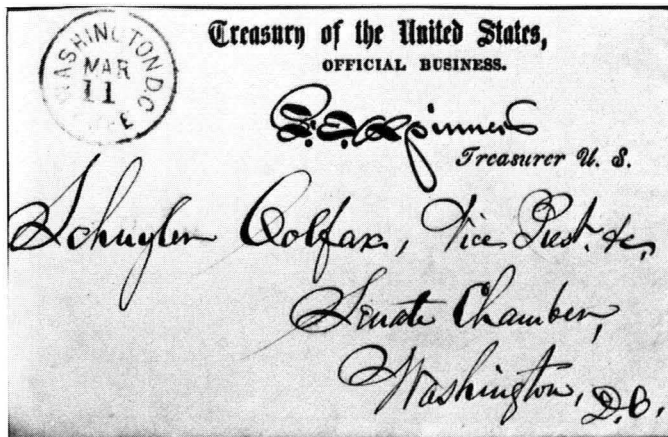 WASHINGTON D.C.
MAR
11
Treasury of the United States,
OFFICIAL BUSINESS.
F. E. Spinner
Treasurer U. S.
Schuyler Colfax, Vice Prest. &c,
Senate Chamber,
Washington, D.C.